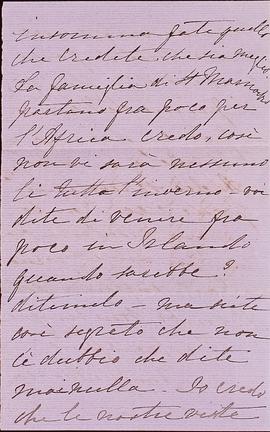 insomma fate quello
che credete, che sia meglio
La famiglia di St
partono fra poco per
l'Africa credo, così
non vi sarà nessuno
lì tutto l'inverno - voi
dite di venire fra
poco in Irlanda
quando sarebbe?
ditemelo - ma siete
così segreto che non
c'è dubbio che dite
mai nulla. Io credo
che le nostre visite